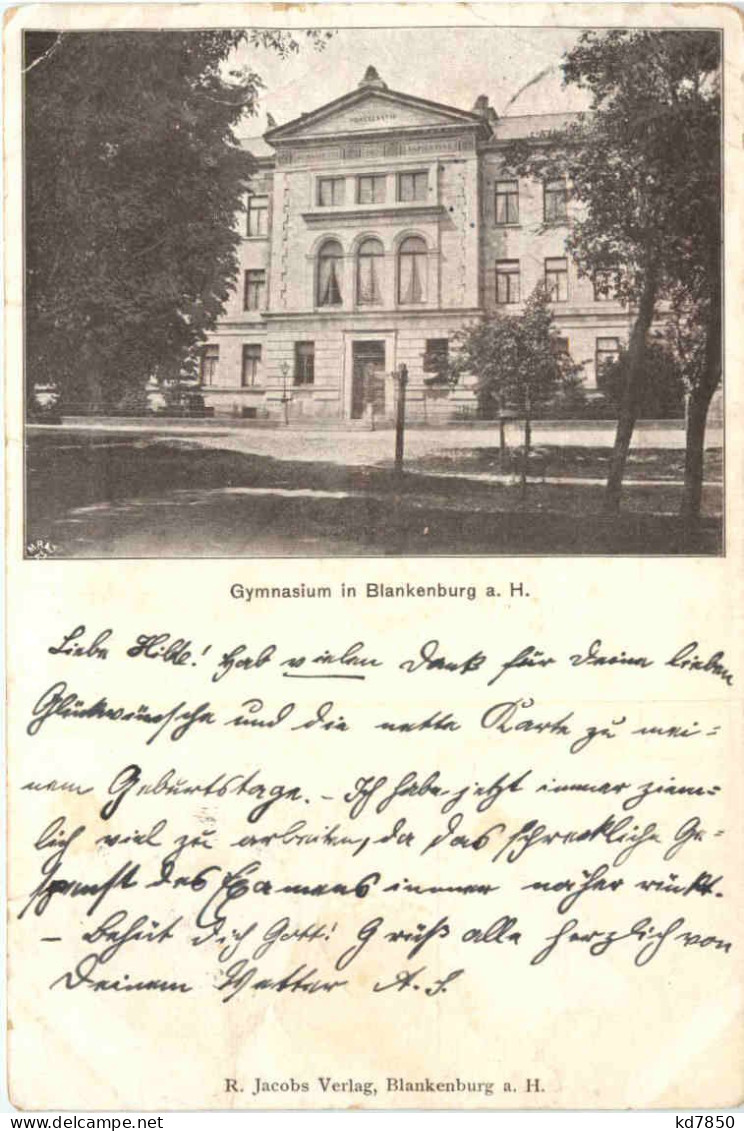 Gymnasium in Blankenburg a. H.
Liebe Hilde! Hab vielen Dank für Deine lieben
Glückwünsche und die nette Karte zu mei-
nem Geburtstage. – Ich habe jetzt immer ziem-
lich viel zu arbeiten, da das schreckliche Ge-
spenst des Examens immer näher rückt.
– Behüt dich Gott! Grüß alle herzlich von
Deinem Vetter A. S.
R. Jacobs Verlag, Blankenburg a. H.
kd7850